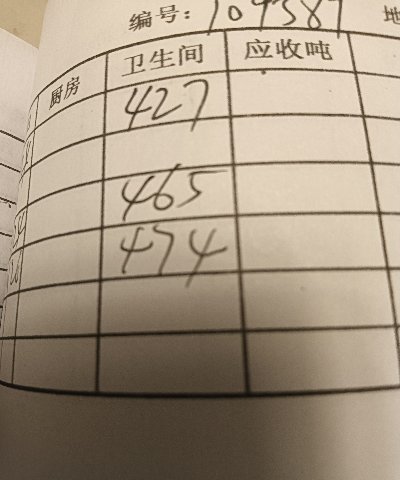 编号: 109387
厨房 卫生间 应收吨
427
465
474